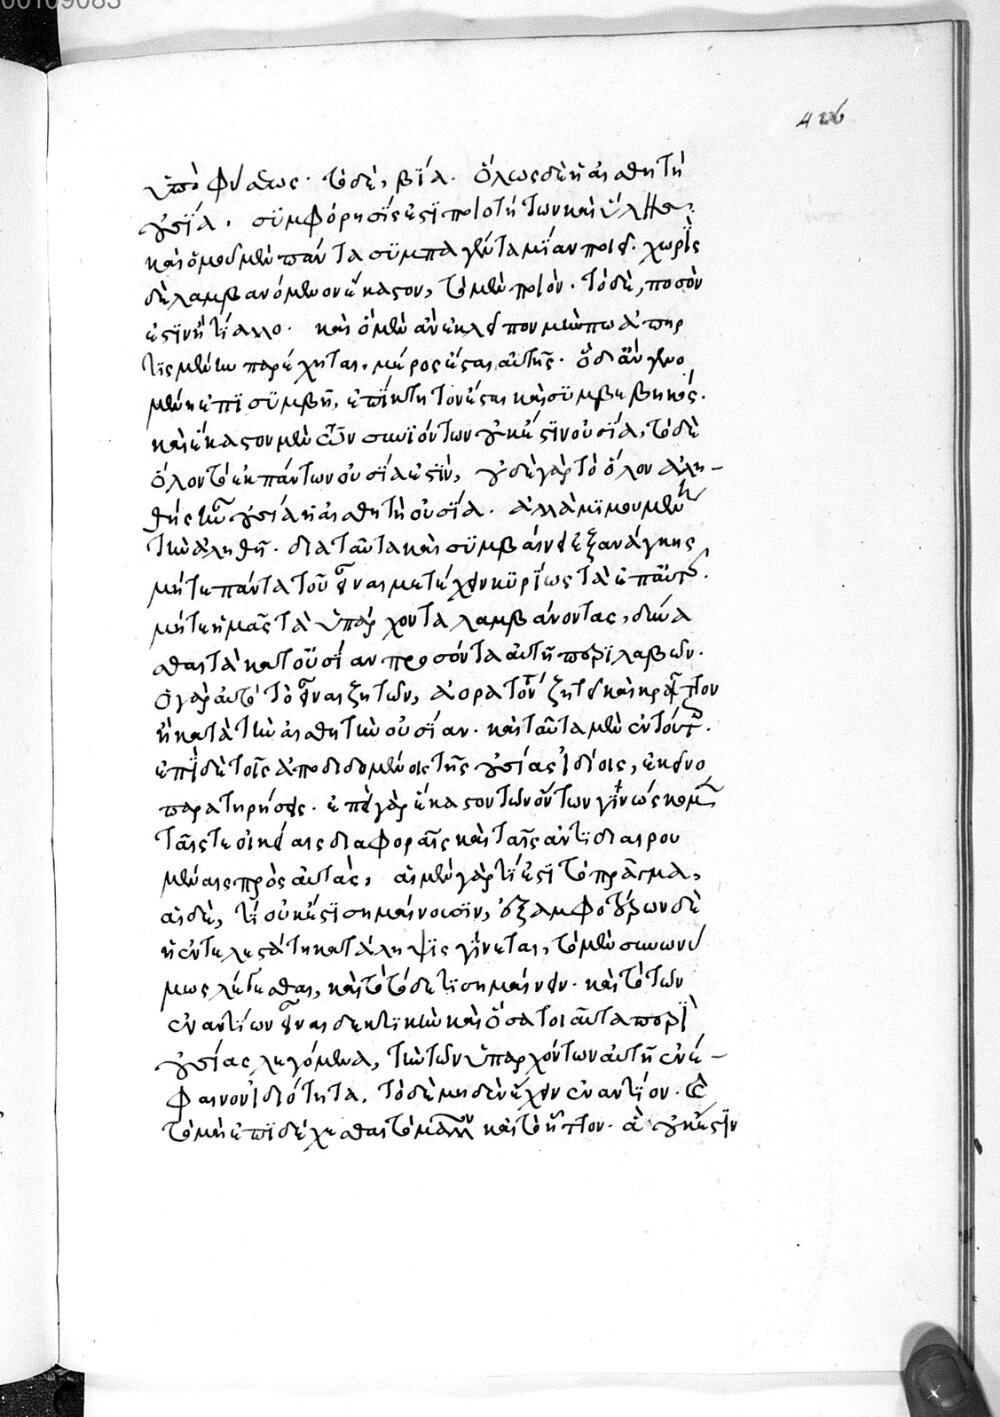 00109083
426
ὑπὸ φύσεως. τὸ δὲ, βία. ὅλως δὲ ἡ αἰσθητὴ
οὐσία. συμφόρησίς ἐστι ποιοτήτων καὶ ὕλης.
καὶ ὁμοῦ μὲν πάντα συμπαγέντα μίαν ποιεῖ. χωρὶς
δὲ λαμβανόμενον ἕκαστον, τὸ μὲν ποιὸν. τὸ δὲ, ποσὸν
ἐστιν ἤ τι ἄλλο. καὶ ὃ μὲν ἂν ἐκλεῖπον μήπω ἀπηρ
τισμένην παρέχηται. μέρος ἔσται αὐτῆς. ὃ δ' ἂν γενο
μένη ἐπισυμβῇ, ἐπίκτητον ἔσται καὶ συμβεβηκός.
καὶ ἕκαστον μὲν τῶν συνιόντων οὐκ ἔστιν οὐσία, τὸ δὲ
ὅλον τὸ ἐκ πάντων οὐσία ἐστὶν, οὐδὲ γὰρ τὸ ὅλον ἀλη-
θής τῷ οὐσία ἡ αἰσθητὴ οὐσία. ἀλλὰ μιμουμένη
τὴν ἀληθῆ. διὰ ταῦτα καὶ συμβαίνει ἐξ ἀνάγκης
μήτε πάντα τοῦ εἶναι μετέχειν κυρίως τὰ ἐπ' αὐτῆς.
μήτε ἡμᾶς τὰ ὑπάρχοντα λαμβάνοντας, δύνα
σθαι τὰ κατ' οὐσίαν προσόντα αὐτῇ περιλαβεῖν.
ὁ γὰρ αὐτὸ τὸ εἶναι ζητῶν, ἀόρατον ζητεῖ καὶ κρεῖττον
ἢ κατὰ τὴν αἰσθητὴν οὐσίαν. καὶ ταῦτα μὲν ἐν τούτοις.
ἐπὶ δὲ τοῖς ἀποδιδομένοις τῆς οὐσίας ἰδίοις, ἐκεῖνο
παρατηρήσεις. ἐπεὶ γὰρ ἕκαστον τῶν ὄντων γινώσκομεν
ταῖς τε οἰκείαις διαφοραῖς καὶ ταῖς ἀντιδιαιρου
μέναις πρὸς αὐτάς, αἱ μὲν γὰρ τί ἐστι τὸ πρᾶγμα,
αἱ δὲ, τί οὐκ ἔστι σημαίνουσιν, ἐξ ἀμφοτέρων δὲ
ἡ ἐντελεστάτη κατάληψις γίνεται, τὸ μὲν συνωνύ
μως λέγεσθαι, καὶ τὸ τόδε τι σημαίνειν. καὶ τὸ τῶν
ἐναντίων εἶναι δεκτικὴν καὶ ὅσα τοιαῦτα περὶ
οὐσίας λεγόμενα, τὴν τῶν ὑπαρχόντων αὐτῇ ἐνέ-
φαινον ἰδιότητα. τὸ δὲ μηδὲν ἔχειν ἐναντίον. καὶ
τὸ μὴ ἐπιδέχεσθαι τὸ μᾶλλον καὶ τὸ ἧττον. ἃ οὐκ ἔστιν